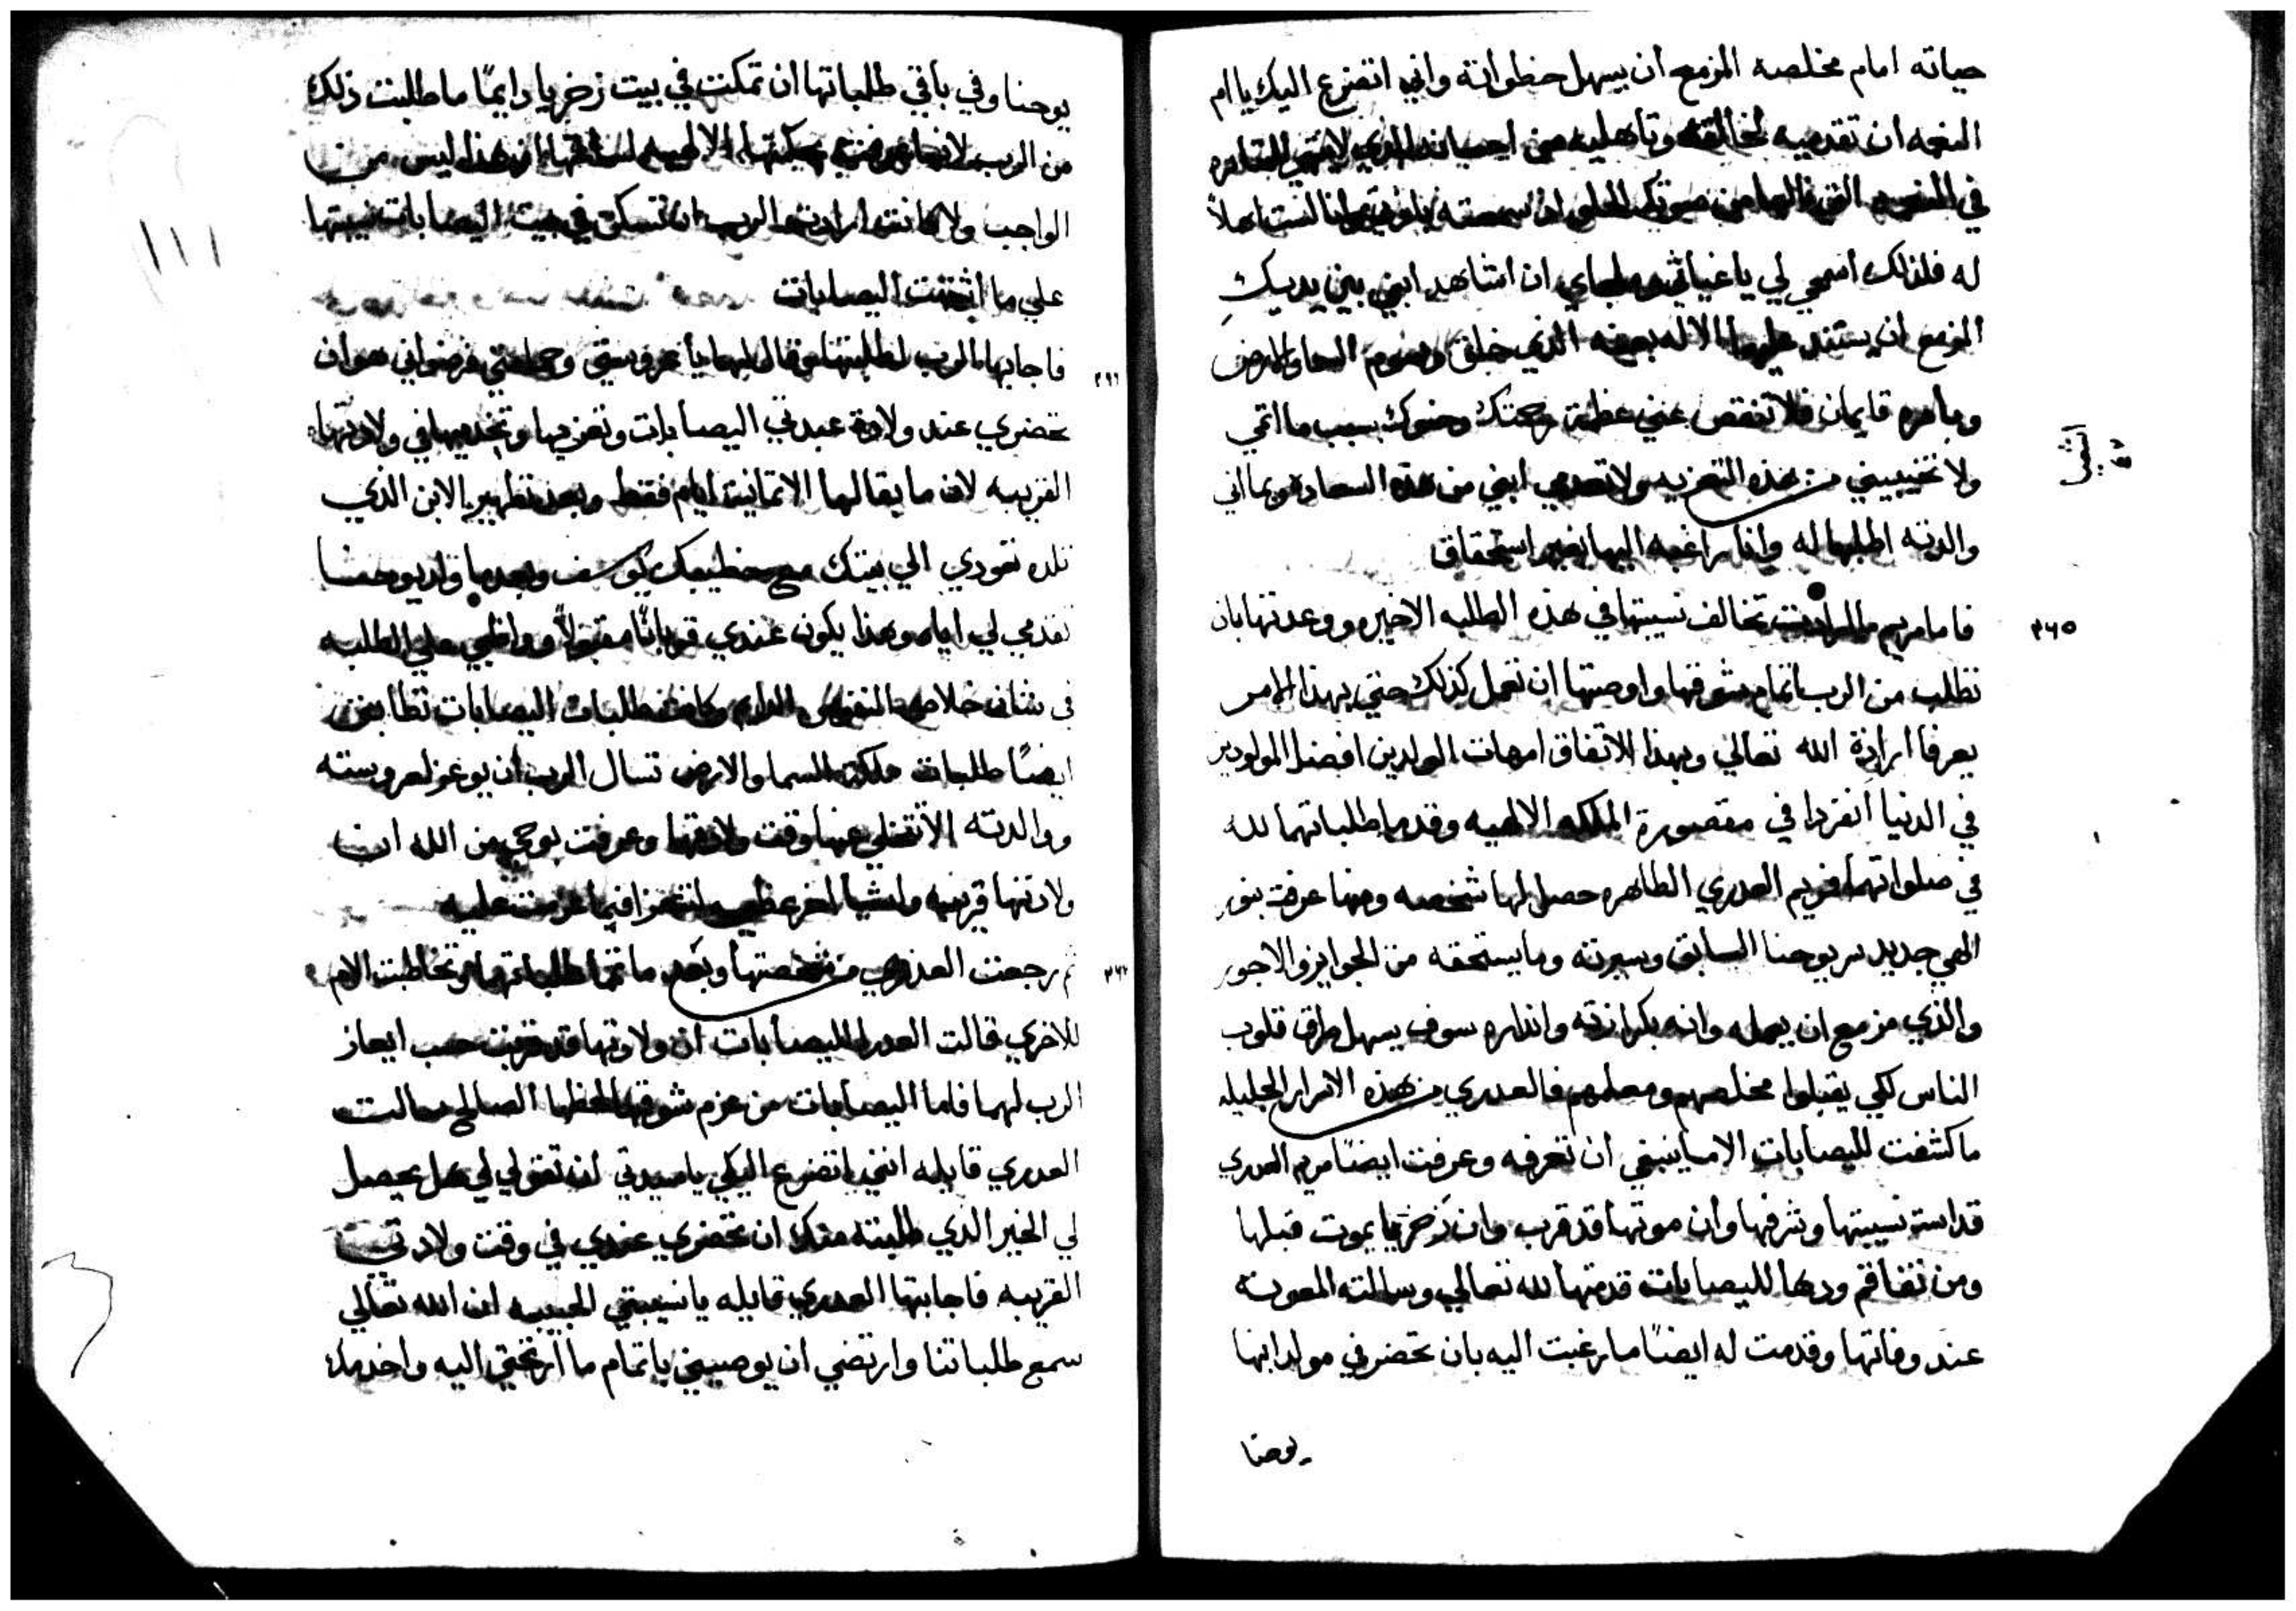 حياته امام مخلصه المزمع ان يسهل خطواته واني اتضرع اليك يا ام
النعمه ان تقدميه لخالقه وتأهليه من احسانه الذي
في النفوس صوتك ان سمعته لست اهلاً
له فلذلك اسمحي لي يا غياثي وملجاي ان اشاهد ابني بين يديكِ
المزمع ان يستند عليهما الاله بعينه الذي خلق السما والارض
وبامره قايمان فلا تنقص عني عظمة رحمتك وحنوك بسبب ما اتمي
ولا تخيبيني من هذه التعزيه ولا تعدمي ابني من هذه السعاده وبما اني
والدته اطلبها له وانا راغبه اليها بغير استحقاق
٣٦٥
فاما مريم ما ارادت تخالف نسيبتها في هذه الطلبه الاخيره ووعدتها بان
تطلب من الرب اتمام شوقها واوصتها ان تعمل كذلك حتي بهذا الامر
يعرفا ارادة الله تعالي وبهذا الاتفاق امهات الولدين افضل المولودين
في الدنيا انفردا في مقصورة الملكه الالهيه وقدما طلباتهما لله
في صلواتهما فمريم العدري الطاهره حصل لها شخصه ومنها عرفت بنور
الهي جديد سر يوحنا السابق وسيرته وما يستحقه من الجوايز والاجور
والذي مزمع ان يعمله وانه بكرازته وانذاره سوف يسهل طرق قلوب
الناس لكي يقبلوا مخلصهم ومعلمهم فالعدري من هذه الاسرار الجليله
ما كشفت لليصابات الا ما ينبغي ان تعرفه وعرفت ايضاً مريم العدري
قداسة نسيبتها وشرفها وان موتها قد قرب وان زخريا يموت قبلها
ومن تفاقم ودها لليصابات قدمتها لله تعالي وسالته المعونه
عند وفاتها وقدمت له ايضاً ما رغبت اليه بان تحضر في مولد ابنها
يوحنا
يوحنا وفي باقي طلباتها ان تمكث في بيت زخريا دايمًا ما طلبت ذلك
من الرب لانها بحكمتها الالهيه ان هذا ليس من
الواجب ولا كانت ارادت الرب ان تسكن في بيت اليصابات نسيبتها
علي ما اشتهت اليصابات
فاجابها الرب لطلبتها وقال لها يا عروستي وحمامتي فرضواني هو ان
تحضري عند ولادة عبدتي اليصابات وتعزيها وتخدميها في ولادتها
القريبه لان ما بقا لها الا تمانية ايام فقط وبعد تطهير الابن الذي
تلده تعودي الي بيتك مع خطيبك يوسف وبعدما يولد يوحنا
تقدمي لي اياه وهذا يكون عندي قربانًا مقبولاً وواظبي علي الطلبه
في شان خلاص النفوس الدايم وكانت طلبات اليصابات تطابق
ايضًا طلبات ملكة السما والارض تسال الرب ان يوعز لعروسته
ووالدته الا تتخلي عنها وقت ولادتها وعرفت بوحي من الله ان
ولادتها قريبه واشيا اخر عظيمه
ثم رجعت العدري من شخصتها وبعد ما تمما طلباتهما وتخاطبت الام
للاخري قالت العدرا لليصابات ان ولادتها قد قربت حسب ايعاز
الرب لهما فاما اليصابات من عزم شوقها لحظها الصالح سالت
العدري قايله انني اتضرع اليكي يا سيدتي ان تقولي لي هل يحصل
لي الخير الذي طلبته منك ان تحضري عندي في وقت ولادتي
القريبه فاجابتها العدري قايله يا نسيبتي الحبيبه ان الله تعالي
سمع طلباتنا وارتضي ان يوصيني باتمام ما ارتجتي اليه واخدمك